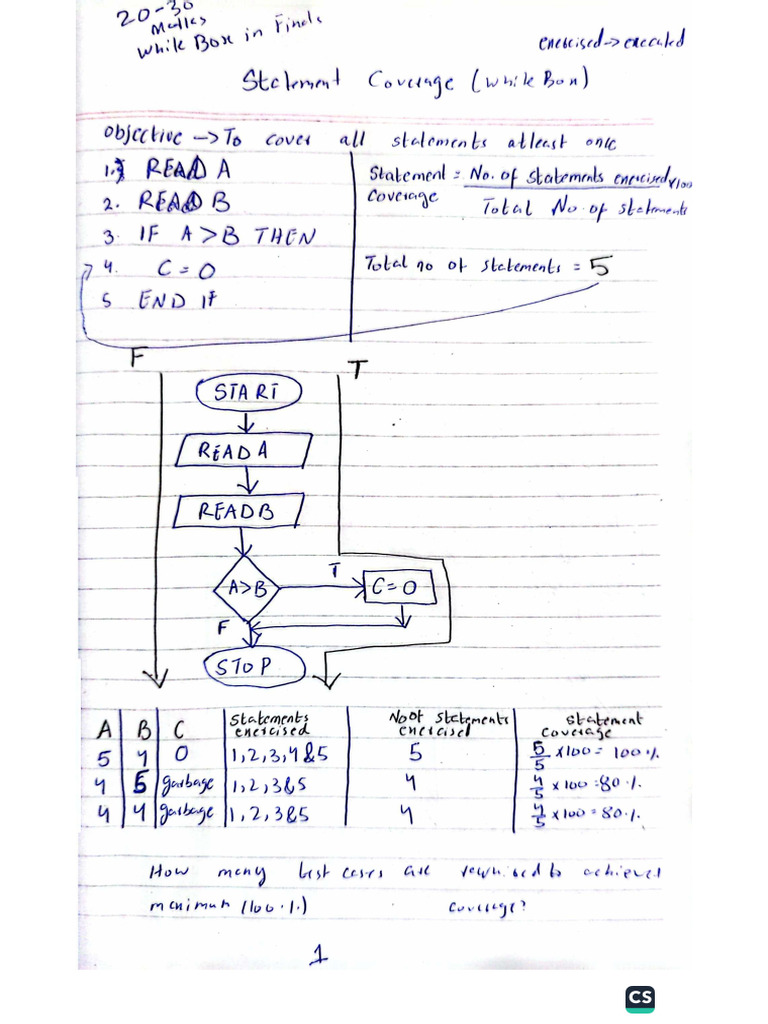 20-30
Marks
White Box in Finals
exercised -> executed
Statement Coverage (White Box)
Objective -> To cover all statements atleast once
1. READ A
2. READ B
3. IF A>B THEN
4. C = 0
5 END IF
Statement Coverage = No. of statements exercised x100
Total No of statements
Total no of statements = 5
F
T
START
READ A
READ B
A>B
T
C = 0
F
STOP
A B C Statements exercised No of statements exercised Statement coverage
5 4 0 1,2,3,4&5 5 5/5 x100 = 100%
4 5 garbage 1,2,3&5 4 4/5 x100 = 80%
4 4 garbage 1,2,3&5 4 4/5 x100 = 80%
How many test cases are required to achieve
(100%) coverage?
1
CS